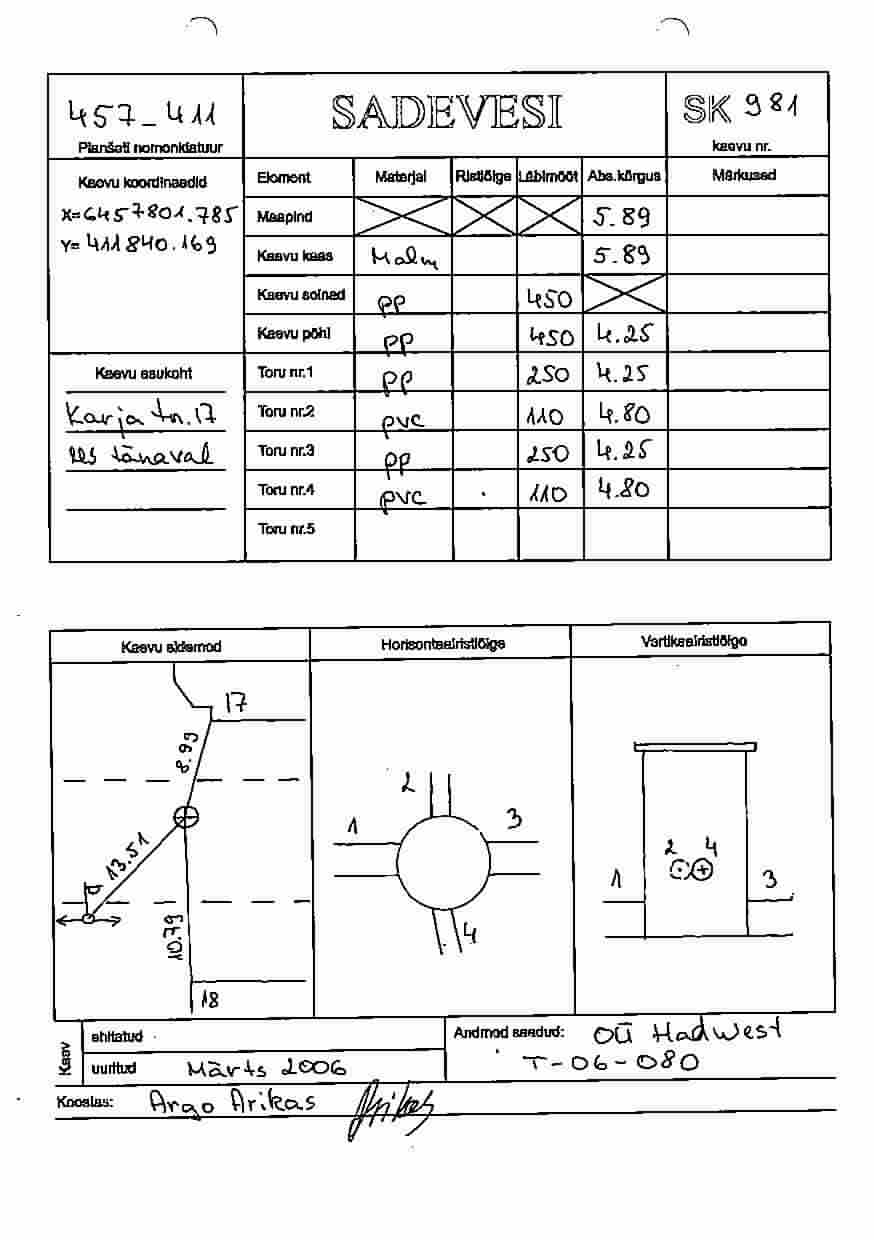 457-411
SADEVESI
SK 981
Planšeti nomenklatuur
kaevu nr.
Kaevu koordinaadid
X=6457801.785
Y=411840.169
Element Materjal Ristlõige Läbimõõt Abs.kõrgus Märkused
Maapind 5.89
Kaevu kaas Malm 5.89
Kaevu seinad PP 450
Kaevu põhi PP 450 4.25
Kaevu asukoht
Karja tn.17
ees tänaval
Toru nr.1 PP 250 4.25
Toru nr.2 PVC 110 4.80
Toru nr.3 PP 250 4.25
Toru nr.4 PVC 110 4.80
Toru nr.5
Kaevu sidemed
Horisontaalristlõige
Vertikaalristlõige
17
8.99
13.51
10.79
18
1
2
3
4
2 4
1
3
Kaev
ehitatud
uuritud Märts 2006
Andmed saadud: OÜ Hadwest
T-06-080
Koostas: Argo Arikas